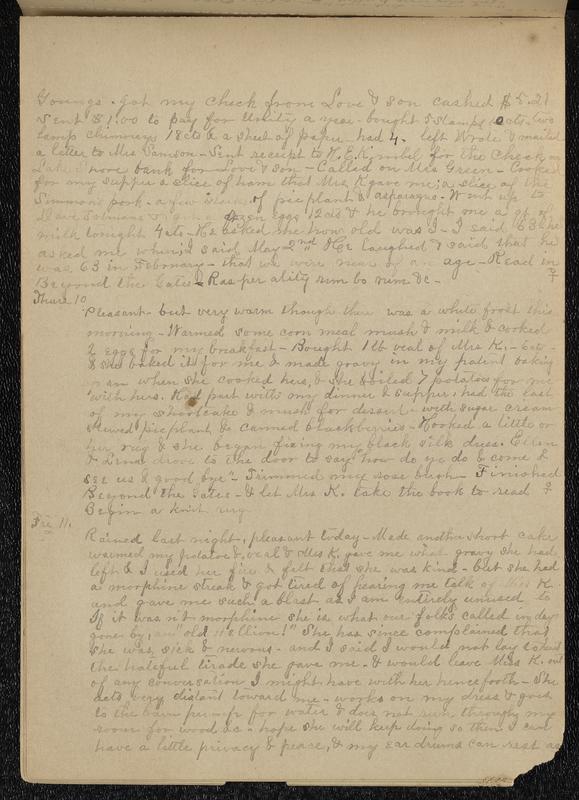 Youngs. got my check from Love & Son cashed $5.21
Sent $1.00 to pay for Utility a year - bought 5 stamps 10 cts, two
lamp chimneys 18 cts & a sheet of paper - had 4. left Wrote & mailed
a letter to Mrs Samson - Sent receipt to H. E. Kimbel for the check on
Lake Shore bank for Love & Son - Called on Mrs Green - Cooked
for my supper a slice of ham that Mrs K gave me, a slice of the
Simmons pork - a few stalks of pieplant & asparagus. Went up to
Dave dozen eggs 12 cts & he brought me a qt of
milk tonight 4 cts - He asked me how old was I - I said 63 & he
asked me when, I said May 2nd He laughed & said that he
was 63 in February - that we were near of an age - Read in
Beyond the Gates - Ras per ality rum bo rum &c -
Thurs 10
Pleasant - but very warm though there was a white frost this
morning - Warmed some corn meal mush & milk & cooked
2 eggs for my breakfast - Bought 1 lb veal of Mrs K. -
& she baked it for me & made gravy in my patent baking
when she cooked hers, & she boiled 7 potatoes for me
with hers. Had part with my dinner & supper, had the last
of my shortcake & mush for dessert - with sugar cream
stewed pieplant, & canned blackberries - Hooked a little on
her rug & she began fixing my black silk dress. Ellen
& Lena drove to the door to say "how do ye do & come &
see us & good bye" - Trimmed my rose bush - Finished
Beyond the Gates - & let Mrs K. take the book to read
Begin a knit rug
Fri 11.
Rained last night, pleasant today - Made another short cake
warmed my potatoe &, veal & Mrs K. gave me what gravy she had
left & I used her fire & felt that she was kind - but she had
a morphine streak & got tired of hearing me talk of Miss K.
and gave me such a blast as I am entirely unused to
If it was n't morphine she is what our folks called in days
gone by, an "old Hellion!" She has since complained that
she was sick & nervous - and I said I would not lay to heart
the hateful tirade she gave me - & would leave Miss K. out
of any conversation I might have with her hence forth - She
acts very distant toward me - works on my dress & goes
to the barn pump for water & does not run through my
room for wood &c - hope she will keep doing so then I can
have a little privacy & peace, & my ear drums can rest as